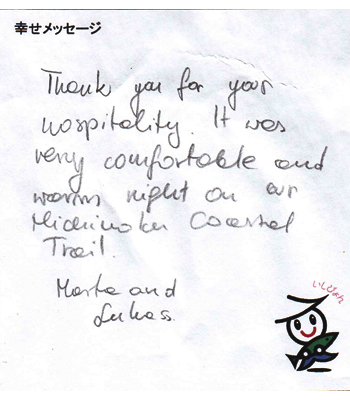 幸せメッセージ
Thank you for your
hospitality. It was
very comfortable and
warm night on our
Michinoku Coastal
Trail.
Marta and
Lukass.
いしぴょん